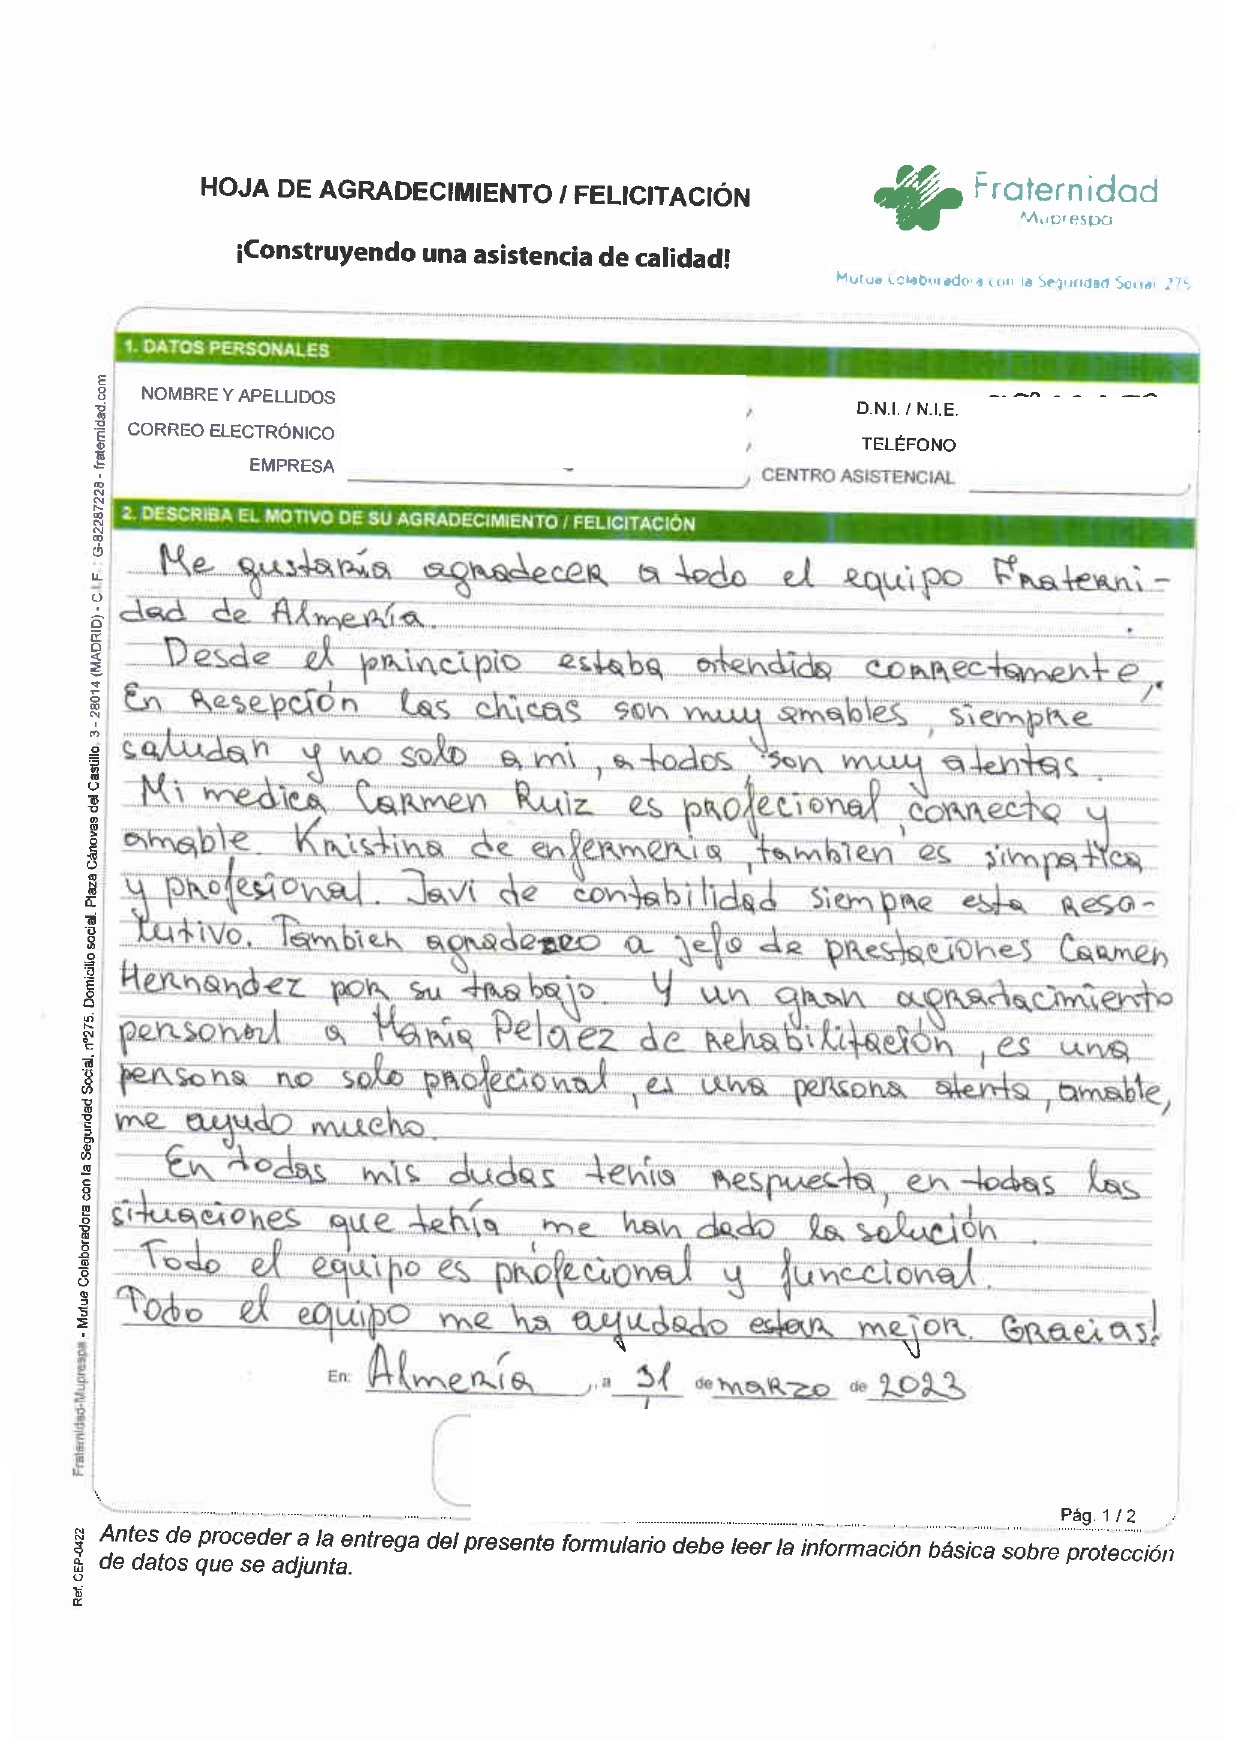 HOJA DE AGRADECIMIENTO / FELICITACIÓN
¡Construyendo una asistencia de calidad!
Fraternidad
Muprespa
Mutua Colaboradora con la Seguridad Social 275
1. DATOS PERSONALES
NOMBRE Y APELLIDOS
D.N.I. / N.I.E.
CORREO ELECTRÓNICO
TELÉFONO
EMPRESA
CENTRO ASISTENCIAL
2. DESCRIBA EL MOTIVO DE SU AGRADECIMIENTO / FELICITACIÓN
Me gustaría agradecer a todo el equipo Fraterni-
dad de Almería.
Desde el principio estaba atendida correctamente,.
En Resepción las chicas son muy amables, siempre
saludan y no solo a mi, a todos son muy atentas.
Mi medica Carmen Ruiz es profecional, correcta y
amable. Kristina de enfermeria, tambien es simpatica
y profesional. Javi de contabilidad siempre esta reso-
lutivo. Tambien agradezco a jefa de prestaciones Carmen
Hernandez por su trabajo. Y un gran agradacimiento
personal a Maria Pelaez de rehabilitación, es una
persona no solo profecional, es una persona atenta, amable,
me ayudo mucho.
En todas mis dudas tenia respuesta, en todas las
situaciones que tenía, me han dado la solución.
Todo el equipo es profecional y funccional.
Todo el equipo me ha ayudado estar mejor. Gracias!
En: Almería, a 31 de marzo de 2023
Pág. 1 / 2
Antes de proceder a la entrega del presente formulario debe leer la información básica sobre protección
de datos que se adjunta.
Fraternidad-Muprespa - Mutua Colaboradora con la Seguridad Social, nº275. Domicilio social. Plaza Cánovas del Castillo, 3 - 28014 (MADRID) - C.I.F. : G-82287228 - fraternidad.com
Ref. CEP-0422